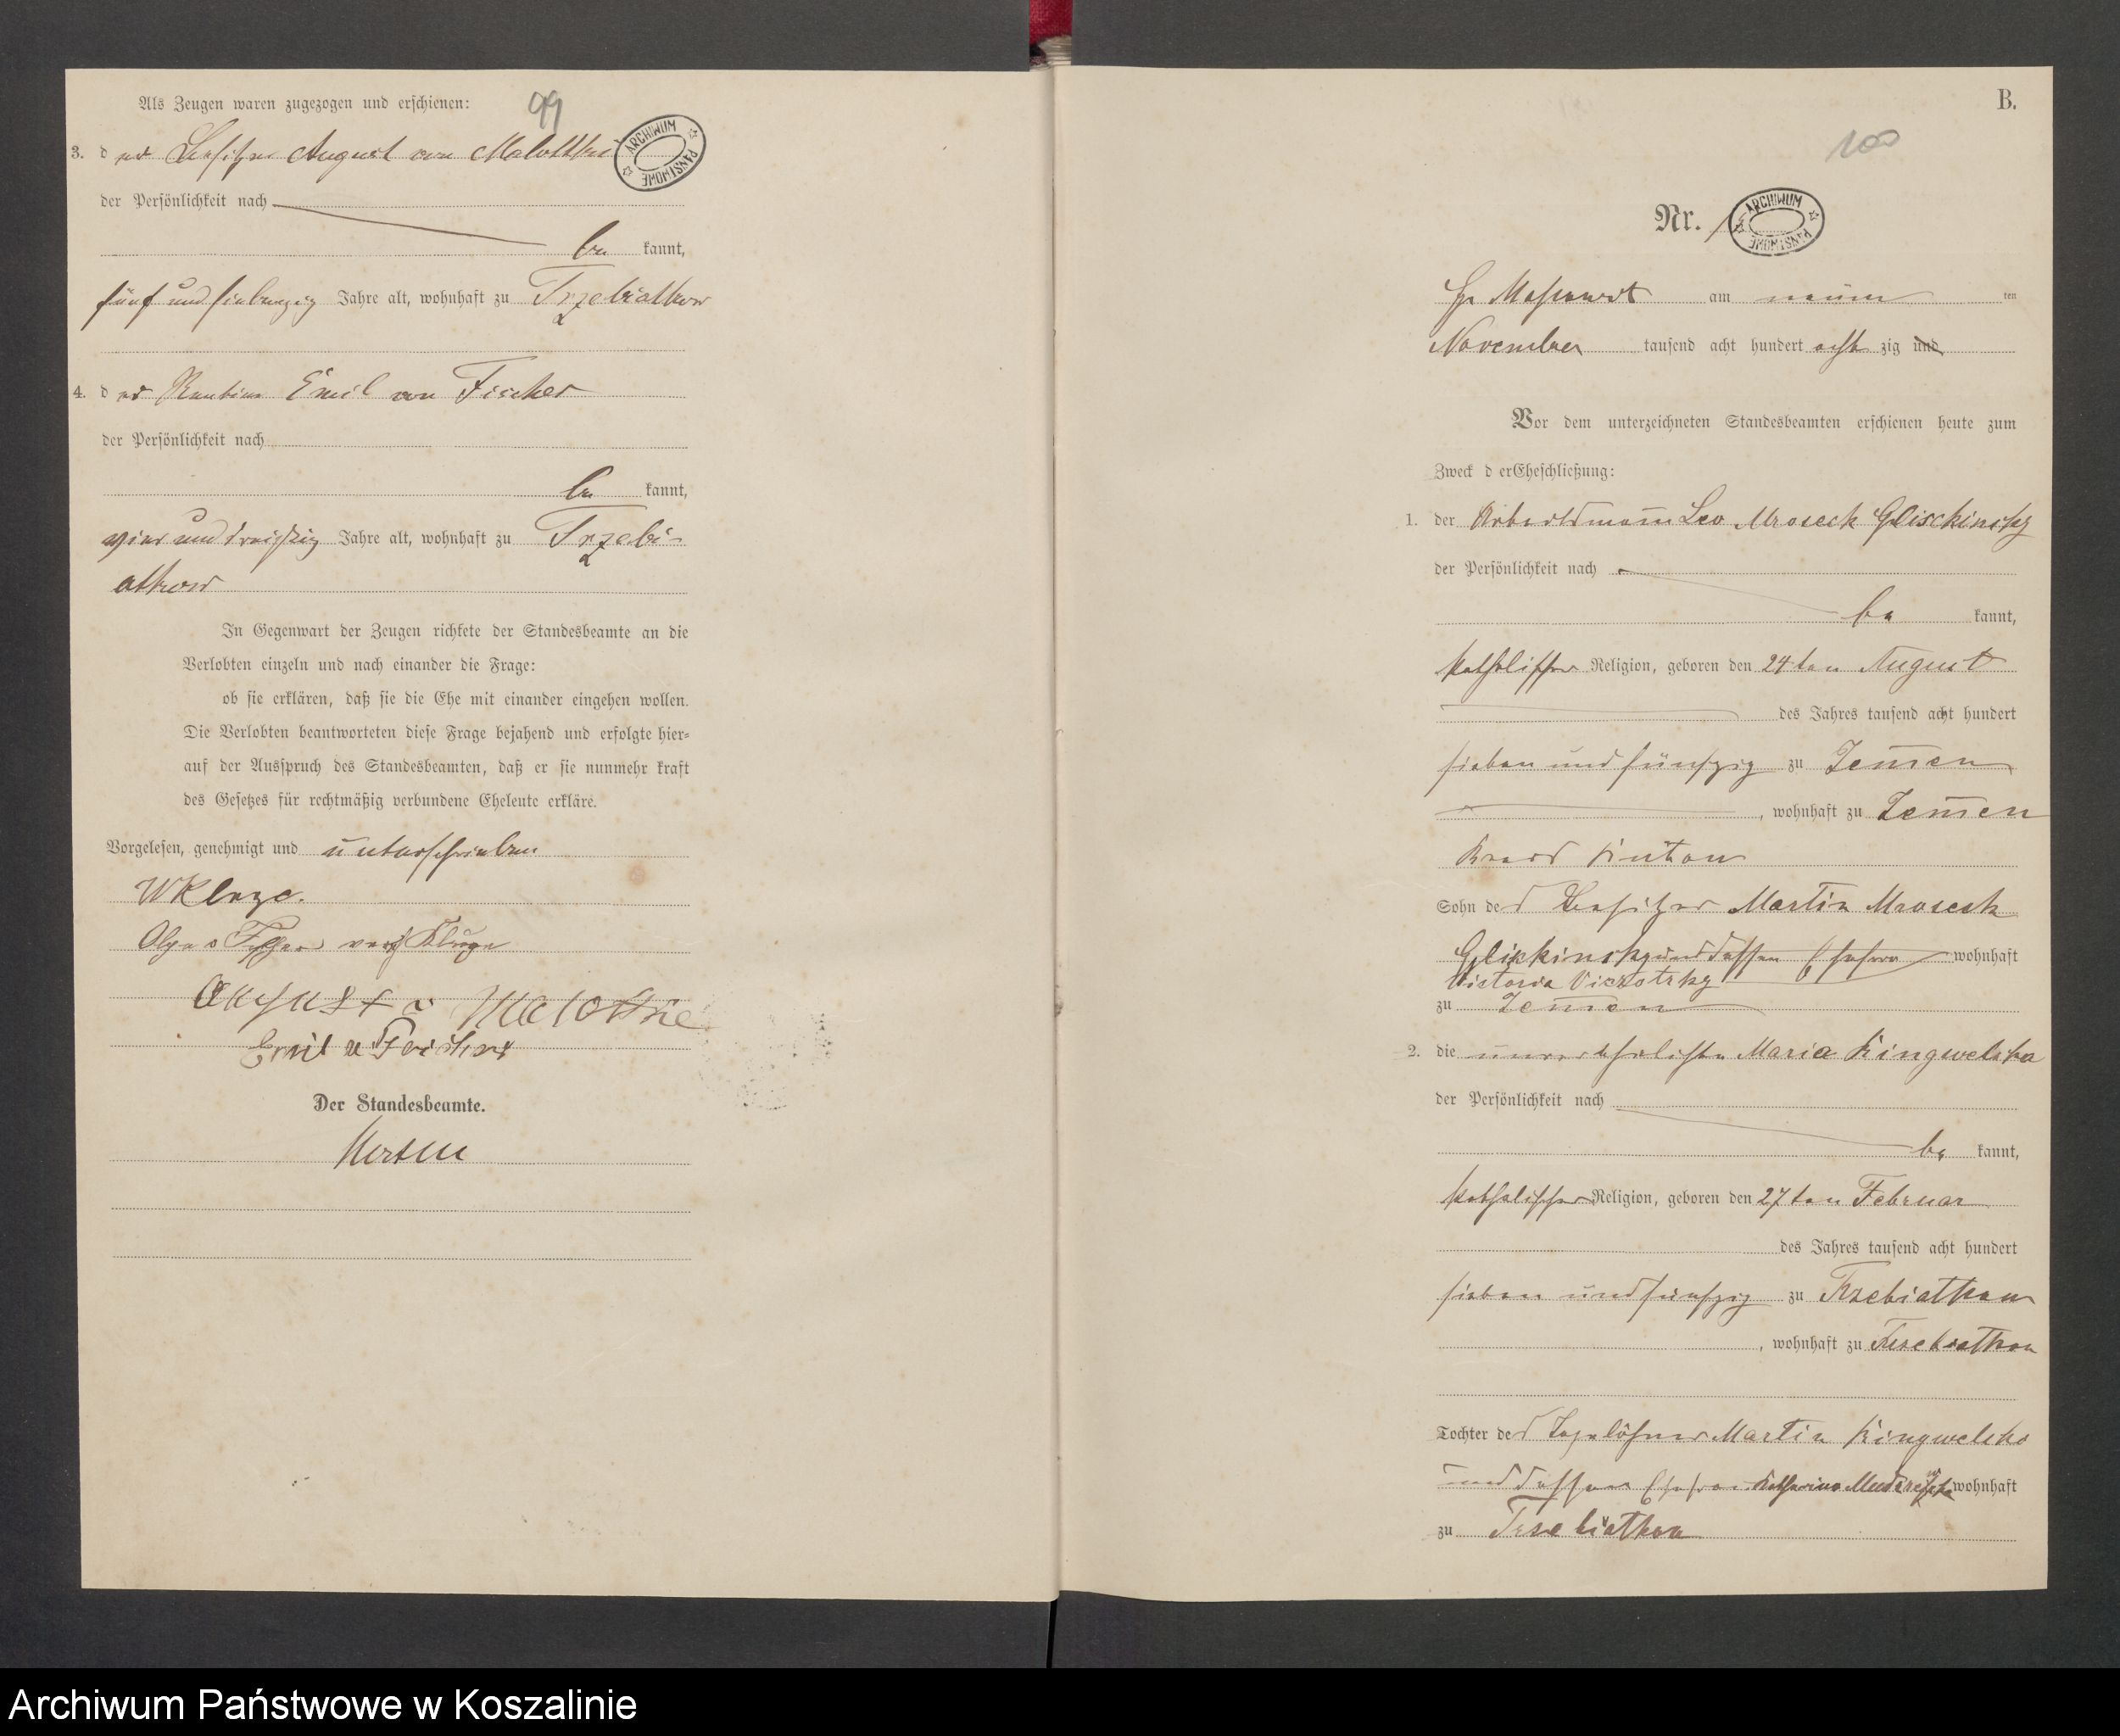 Als Zeugen waren zugezogen und erschienen:
99
ARCHIWUM PAŃSTWOWE
3. der Besitzer August von Malottki
der Persönlichkeit nach
be kannt,
fünf und siebenzig Jahre alt, wohnhaft zu Trzebiatkow
4. der Rentier Emil von Fischer
der Persönlichkeit nach
be kannt,
vier und dreißig Jahre alt, wohnhaft zu Trzebi-
atkow
In Gegenwart der Zeugen richtete der Standesbeamte an die
Verlobten einzeln und nach einander die Frage:
ob sie erklären, daß sie die Ehe mit einander eingehen wollen.
Die Verlobten beantworteten diese Frage bejahend und erfolgte hier-
auf der Ausspruch des Standesbeamten, daß er sie nunmehr kraft
des Gesetzes für rechtmäßig verbundene Eheleute erkläre.
Vorgelesen, genehmigt und unterschrieben
W Kluge.
Kluge
August v Malottki
Emil v Fischer
Der Standesbeamte.
B.
100
Nr.
ARCHIWUM PAŃSTWOWE
Gr Massowit am neun ten
November tausend acht hundert acht zig und
Vor dem unterzeichneten Standesbeamten erschienen heute zum
Zweck der Eheschließung:
1. der Arbeitsmann Leo Mroseck Glischinsky
der Persönlichkeit nach
be kannt,
katholischer Religion, geboren den 24ten August
des Jahres tausend acht hundert
sieben und fünfzig zu Zemmen
, wohnhaft zu Zemmen
Kreis Bütow
Sohn des Besitzer Martin Mroseck
Glischinsky und dessen Ehefrau wohnhaft
Victoria
zu Zemmen
2. die unverehelichte Maria Kingwelska
der Persönlichkeit nach
be kannt,
katholischer Religion, geboren den 27ten Februar
des Jahres tausend acht hundert
sieben und fünfzig zu Trzebiatkow
, wohnhaft zu Trzebiatkow
Tochter des Tagelöhner Martin Kingwelski
und dessen Ehefrau Katharina wohnhaft
zu Trzebiatkow
Archiwum Państwowe w Koszalinie